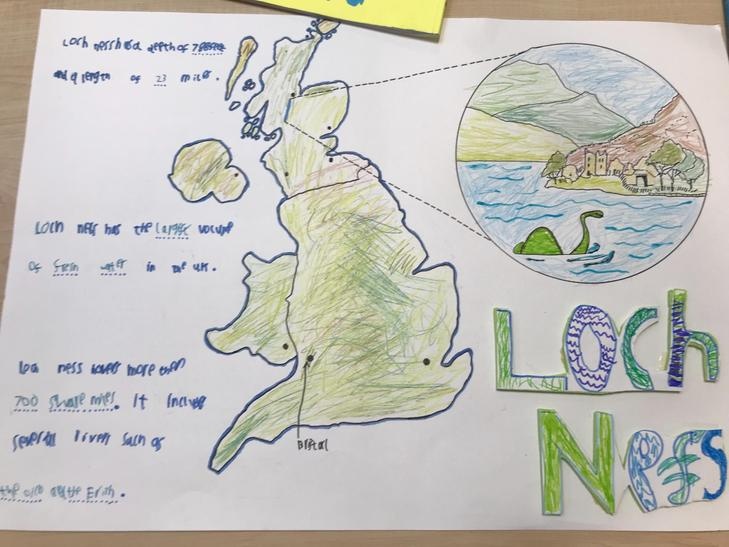 Loch ness has a depth of
and a length of 23 miles.
Loch ness has the largest volume
of fresh water in the uk.
Loch ness covers more than
700 square miles. It includes
several rivers such as
the oich and the Errich.
Bristol
LOCh
NESS